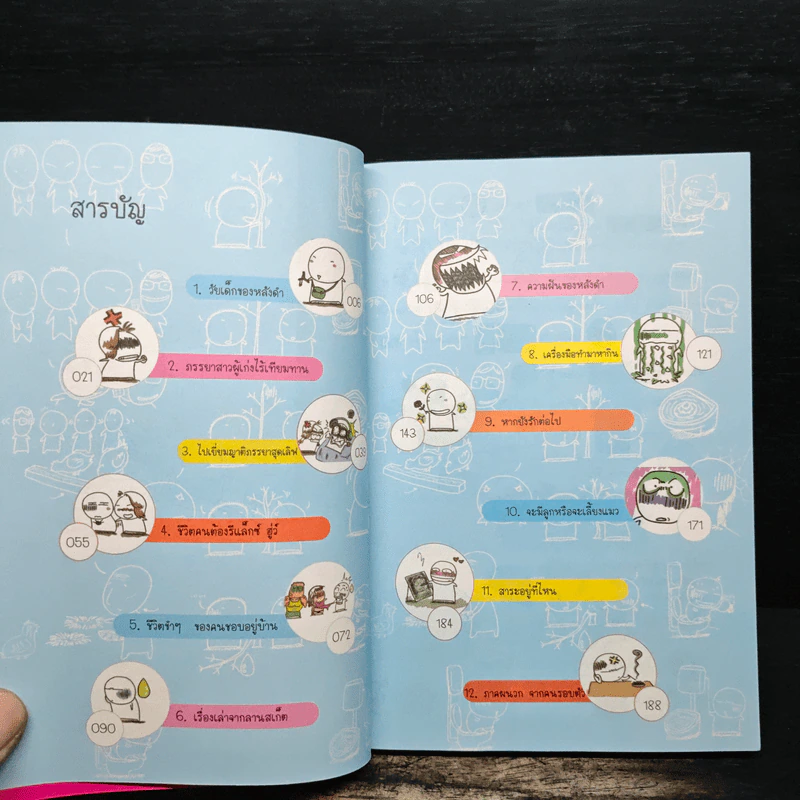 สารบัญ
1. วัยเด็กของหลังดำ
006
021
2. ภรรยาสาวผู้เก่งไร้เทียมทาน
3. ไปเยี่ยมญาติภรรยาสุดเลิฟ
039
055
4. ชีวิตคนต้องรีแล็กซ์ ฮู่ว์
5. ชีวิตขำๆ ของคนชอบอยู่บ้าน
072
090
6. เรื่องเล่าจากลานสเก็ต
106
7. ความฝันของหลังดำ
8. เครื่องมือทำมาหากิน
121
143
9. หากยังรักต่อไป
10. จะมีลูกหรือจะเลี้ยงแมว
171
184
11. สาระอยู่ที่ไหน
12. ภาคผนวก จากคนรอบตัว
188